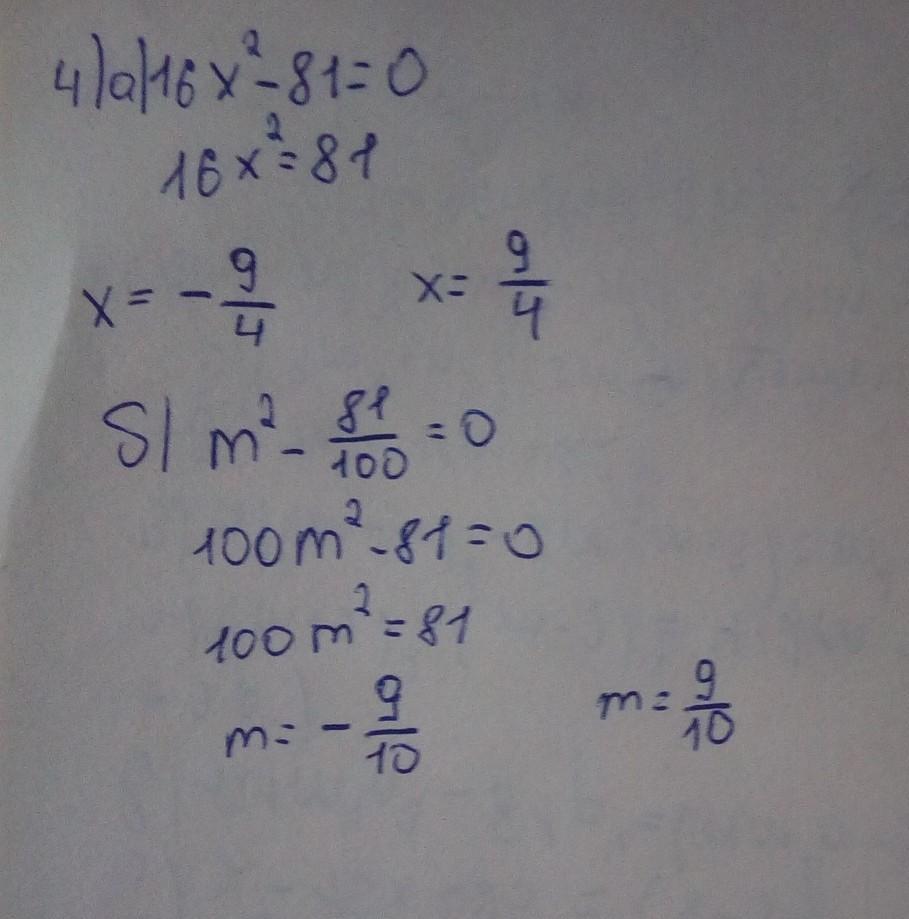 4)a)16x²-81=0
16x²=81
x=-9/4 x=9/4
б) m²-81/100=0
100m²-81=0
100m²=81
m=-9/10 m=9/10